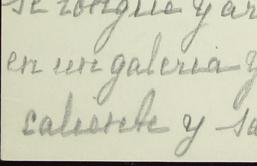 se rongue y ar
en un galeria y
caliente y sa